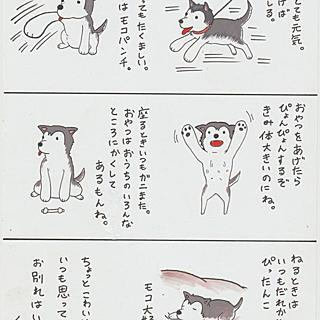 とても元気。
げば
しる。
ってもたくましい。
はモコパンチ。
おやつをあげたら
ぴょんぴょんするぞ
きみ体大きいのにね。
座るときいつもガニまた。
おやつはおうちのいろんな
ところにかくして
あるもんね。
ねるときは
いつもだれか
ぴったんこ
モコ大好
ちょっとこわい
いつも思って
お別れはい